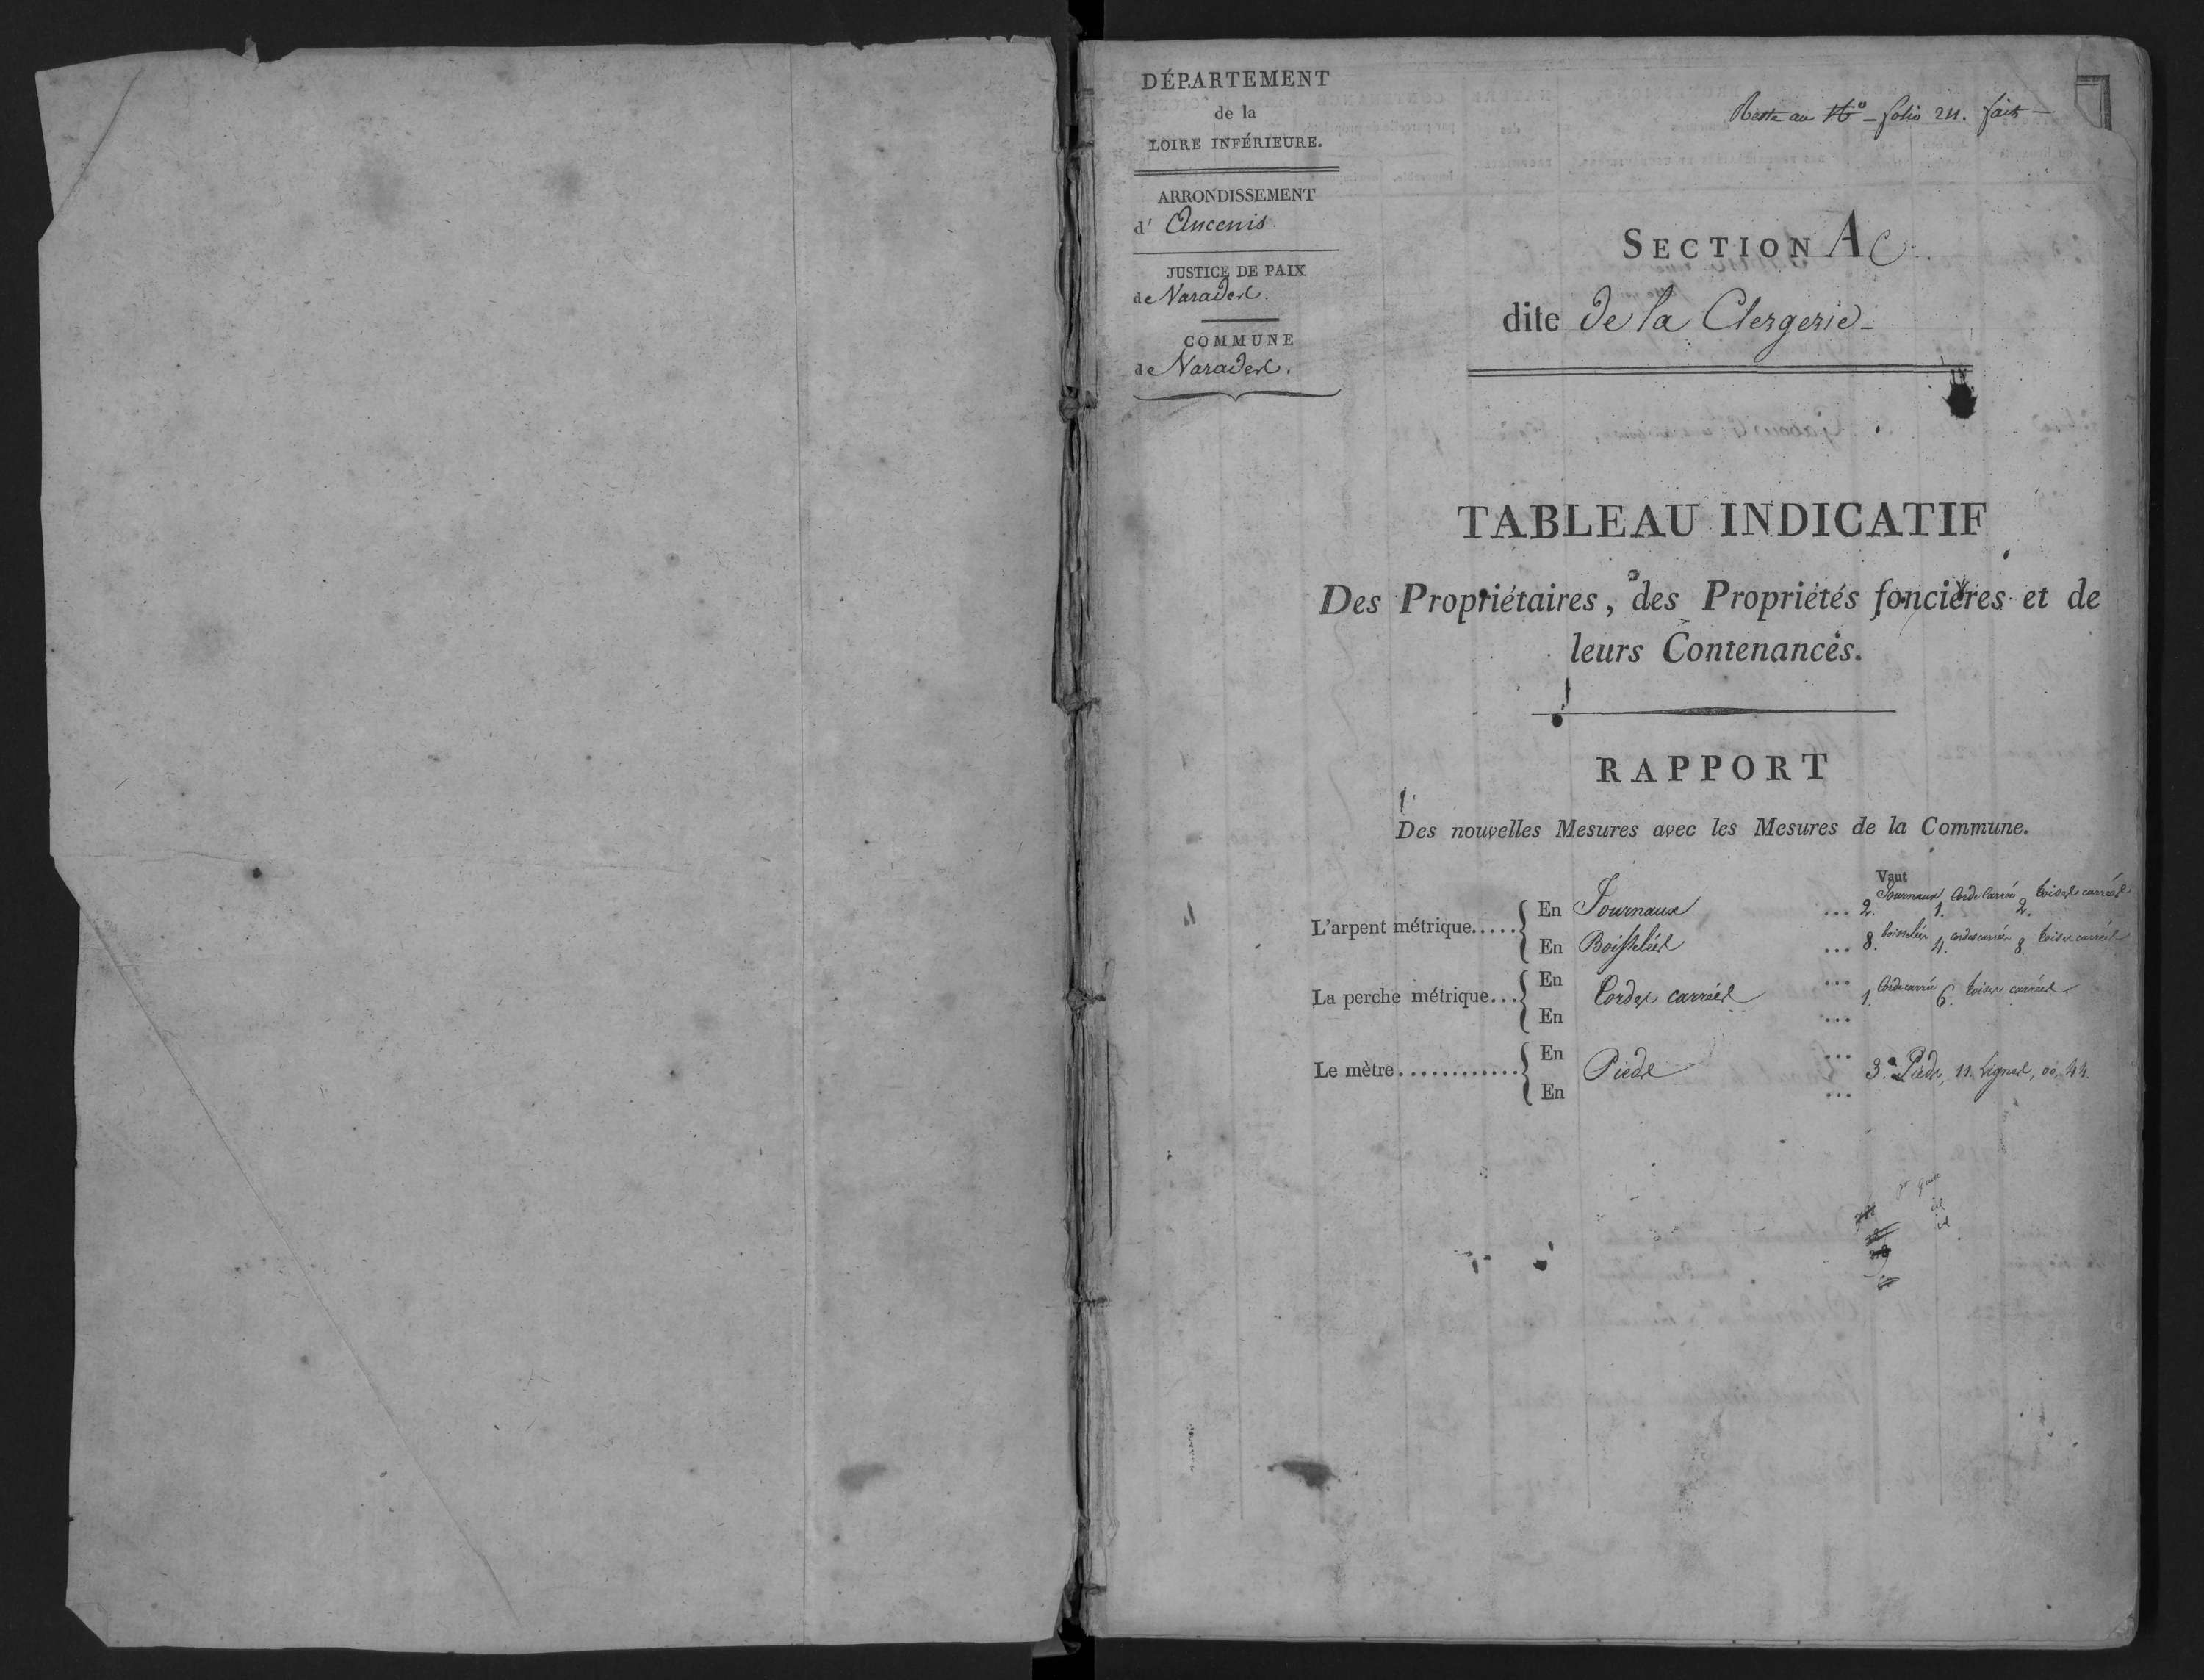 DÉPARTEMENT
de la
LOIRE INFÉRIEURE.
ARRONDISSEMENT
d' Ancenis.
JUSTICE DE PAIX
de Varades.
COMMUNE
de Varades.
Reste au folio 24. fait
SECTION A C.
dite de la Clergerie
TABLEAU INDICATIF
Des Propriétaires, des Propriétés foncières et de
leurs Contenances.
RAPPORT
Des nouvelles Mesures avec les Mesures de la Commune.
Vaut
L'arpent métrique..... En Journaux ... 2. Journaux 1. Corde Carrée 2. toises carrées
En Boisselées ... 8. boisselées 4. cordes carrées 8. toises carrées
La perche métrique... En Cordes carrées ... 1. Corde carrée 6. toises carrées
En ...
Le mètre............ En Pieds ... 3. Pieds, 11. lignes, 00, 44.
En ...